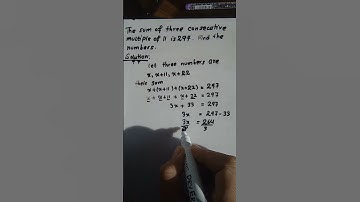 The sum of three consecutive
multiple of 11 is 297. Find the
numbers.
Solution:
let three numbers are
x, x+11, x+22
their sum
x+(x+11)+(x+22) = 297
x + x+11 + x+22 = 297
3x + 33 = 297
3x = 297-33
3x = 264
3